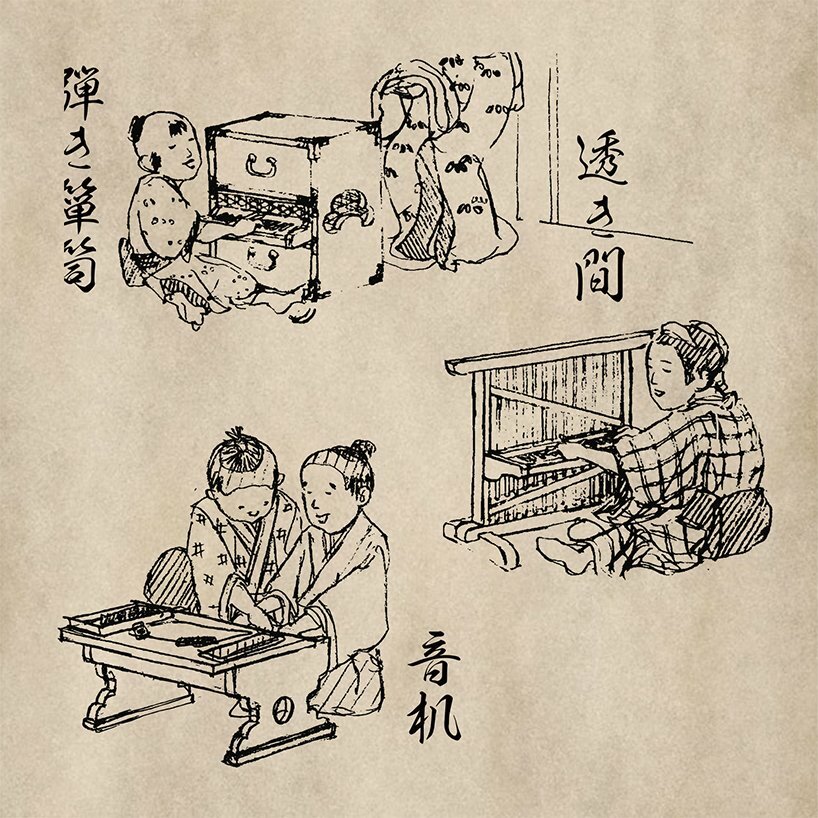 弾き箪笥
透き間
音机